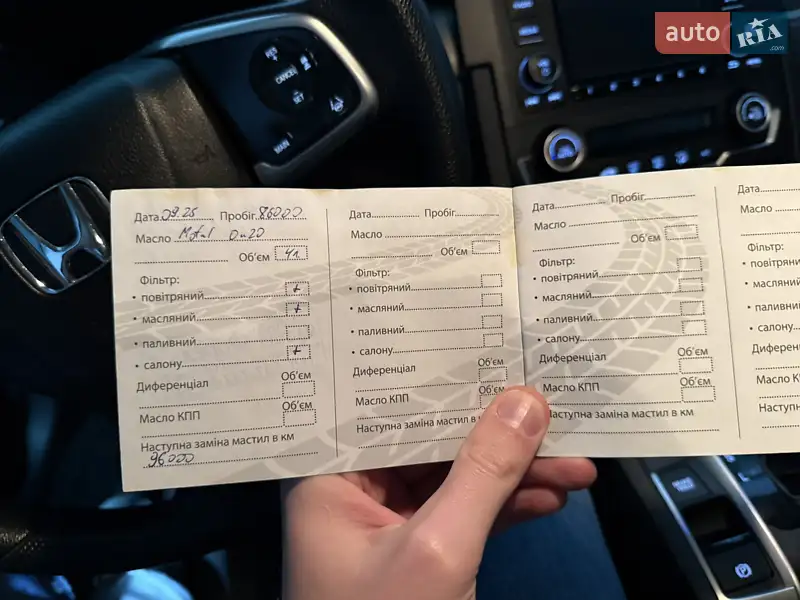 auto RIA .com
RES
CANCEL
SET
MAIN
Дата 09.25 Пробіг 86000
Масло Motul 0w20
Об'єм 4л
Фільтр:
• повітряний +
• масляний +
• паливний
• салону +
Диференціал Об'єм
Масло КПП Об'єм
Наступна заміна мастил в км
96000
Дата Пробіг
Масло
Об'єм
Фільтр:
• повітряний
• масляний
• паливний
• салону
Диференціал Об'єм
Масло КПП Об'єм
Наступна заміна мастил в к
Дата Пробіг
Масло
Об'єм
Фільтр:
• повітряний
• масляний
• паливний
• салону
Диференціал Об'єм
Масло КПП Об'єм
Наступна заміна мастил в км
Дата
Масло
Фільтр:
• повітряни
• масляни
• паливний
• салону
Диферен
Масло К
Наступн